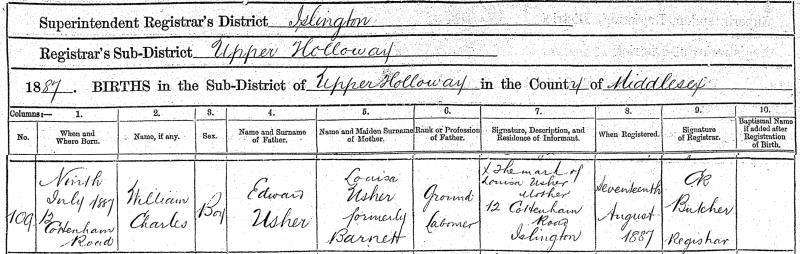 Superintendent Registrar's District Islington
Registrar's Sub-District Upper Holloway
1887. BIRTHS in the Sub-District of Upper Holloway in the County of Middlesex
Columns:— 1. 2. 3. 4. 5. 6. 7. 8. 9. 10.
No. When and Where Born. Name, if any. Sex. Name and Surname of Father. Name and Maiden Surname of Mother. Rank or Profession of Father. Signature, Description, and Residence of Informant. When Registered. Signature of Registrar. Baptismal Name if added after Registration of Birth.
109
Ninth
July 1887
12
Cottenham
Road
William
Charles
Boy
Edward
Usher
Louisa
Usher
formerly
Barnett
Ground
Laborer
X The mark of
Louisa Usher
Mother
12 Cottenham
Road
Islington
Seventeenth
August
1887
Butcher
Registrar